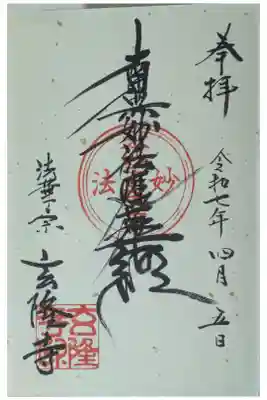 奉拝
令和七年四月五日
南無妙法蓮華経
妙法
法華宗
玄隆寺
玄隆寺印